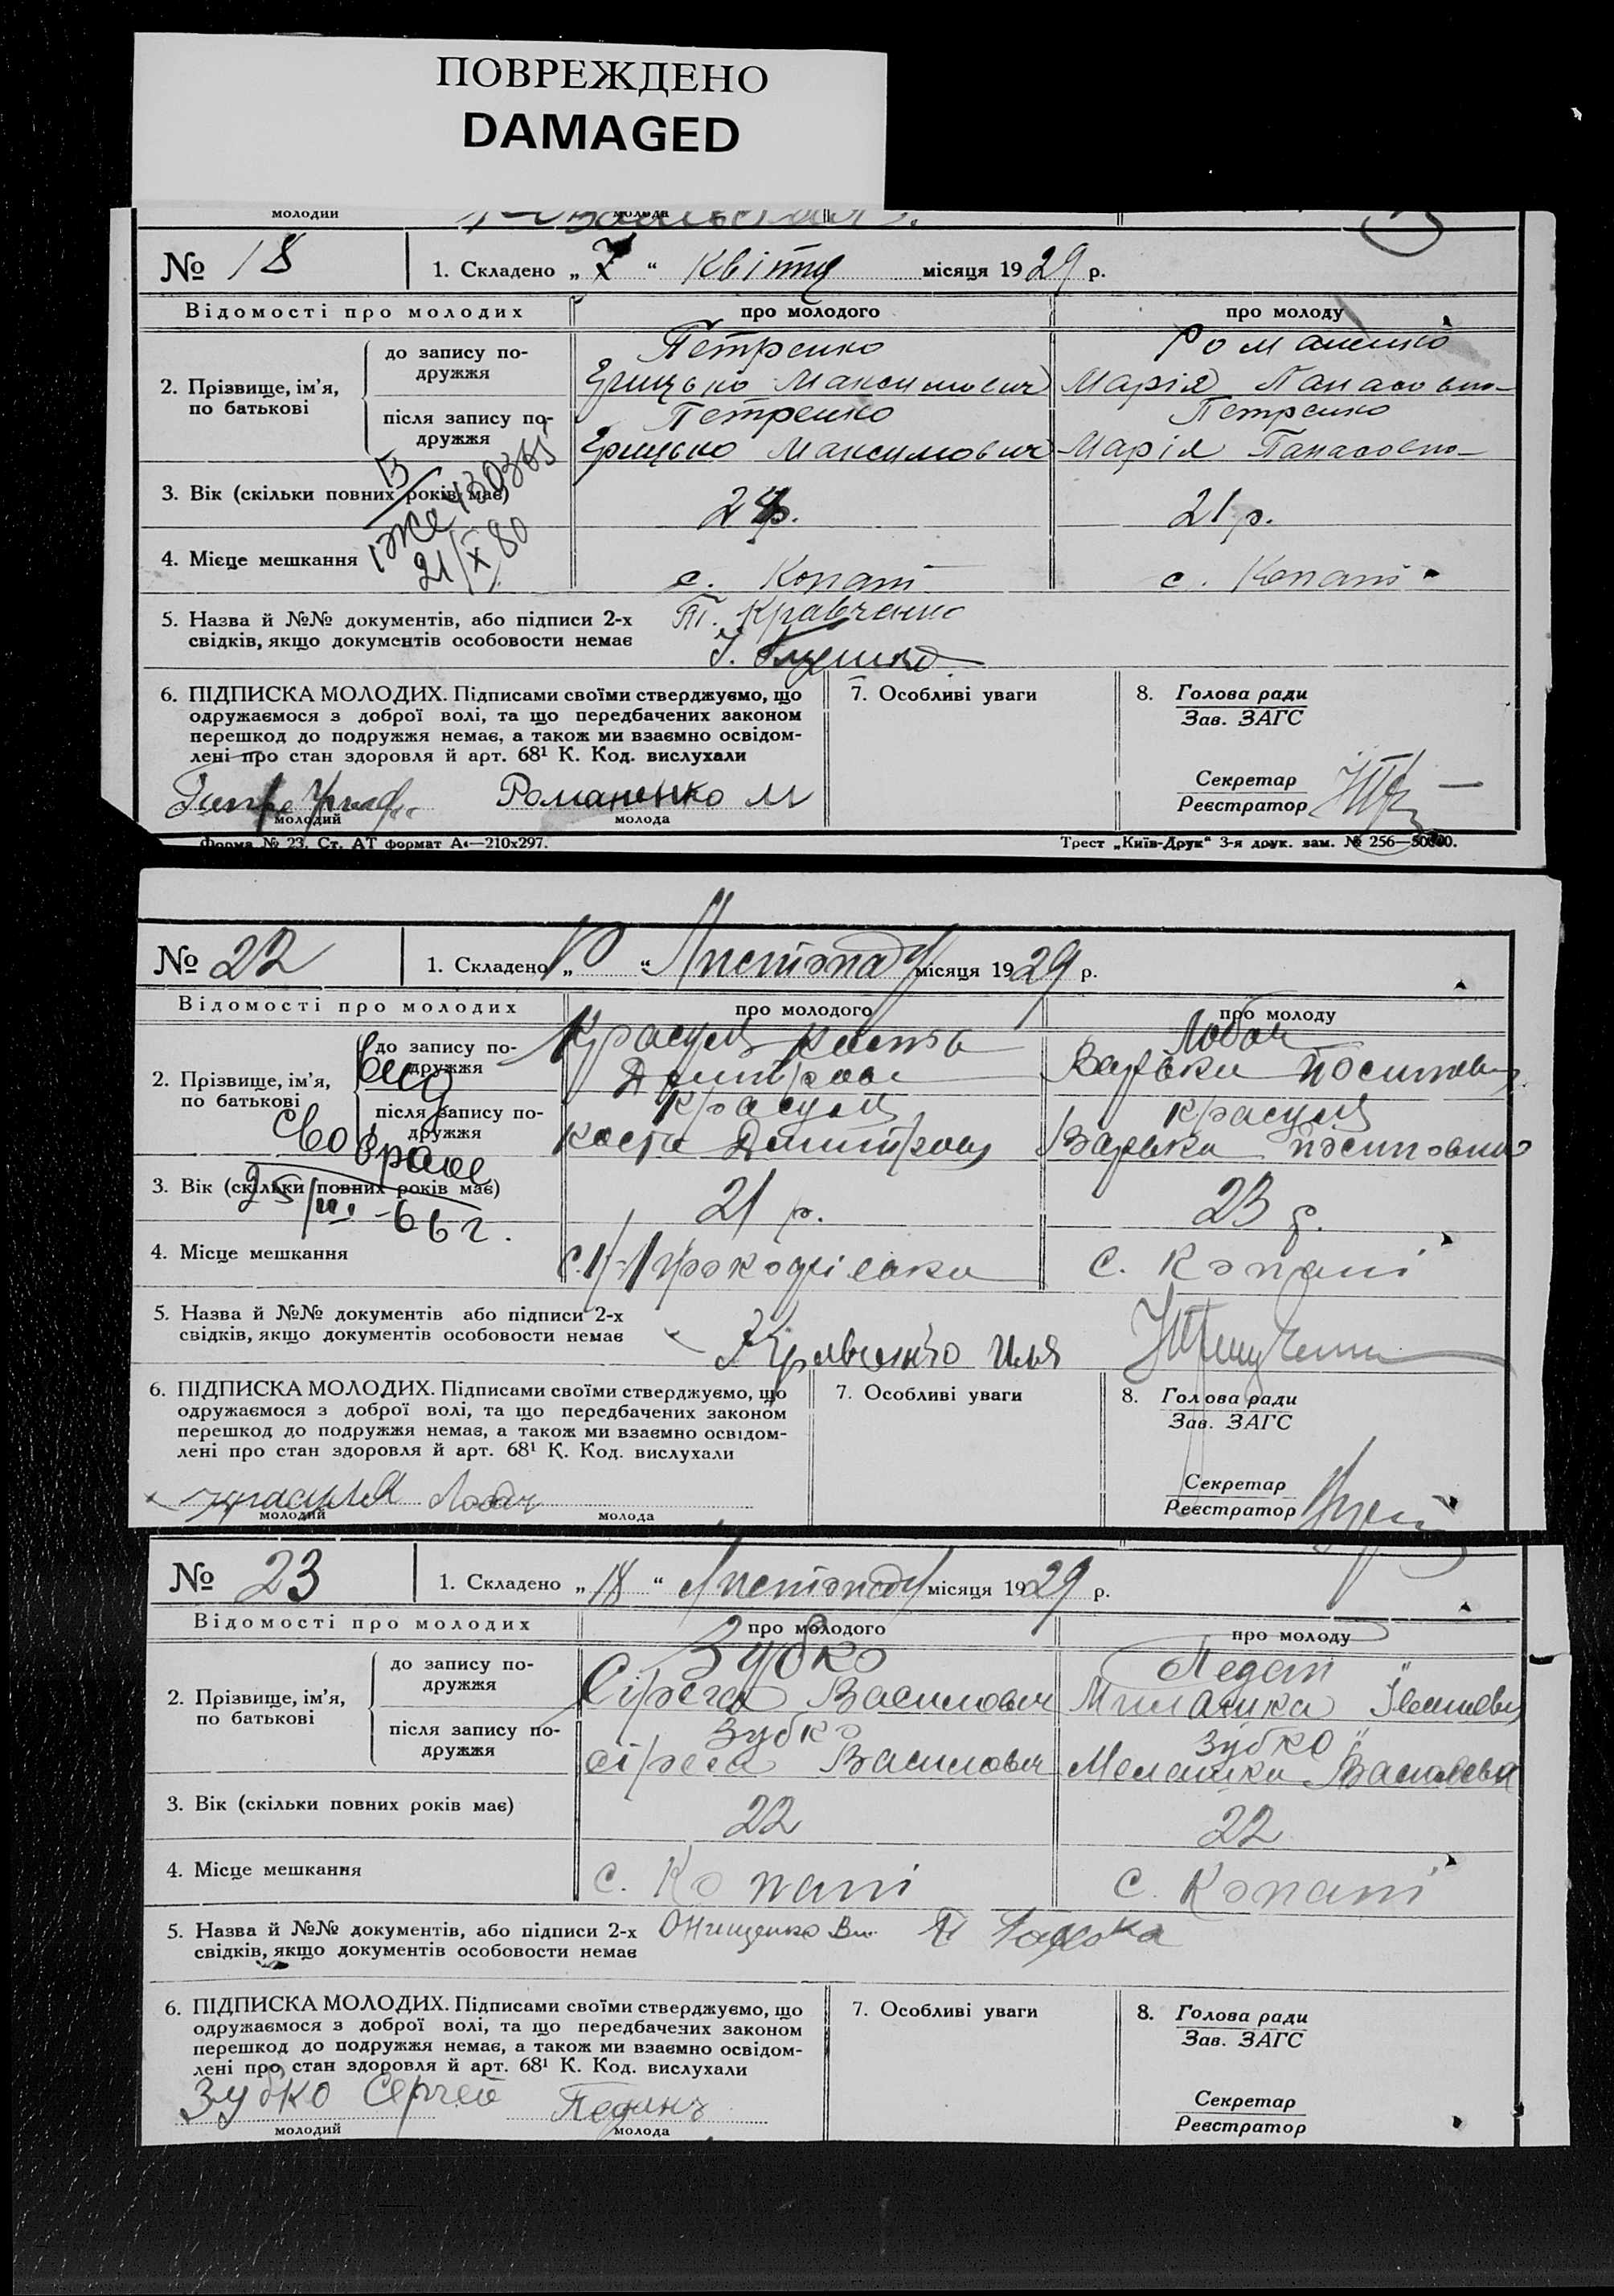 ПОВРЕЖДЕНО
DAMAGED
молодий молода
№ 18 1. Складено „ 7 “ Квітня місяця 1929 р.
Відомості про молодих про молодого про молоду
до запису по-дружжя Петренко Романенко
2. Прізвище, ім’я, по батькові Грицько Максимович Марія Панасовно
після запису по-дружжя Петренко Петренко
Грицько Максимович Марія Панасовно
3. Вік (скільки повних років має) 24 р. 21 р.
430365
21/X 80
4. Місце мешкання с. Копані с. Копані
5. Назва й №№ документів, або підписи 2-х Т. Кравченко
свідків, якщо документів особовости немає І.
6. ПІДПИСКА МОЛОДИХ. Підписами своїми стверджуємо, що 7. Особливі уваги 8. Голова ради
одружаємося з доброї волі, та що передбачених законом Зав. ЗАГС
перешкод до подружжя немає, а також ми взаємно освідом-
лені про стан здоровля й арт. 68¹ К. Код. вислухали Секретар
Романенко М Реєстратор
молодий молода
Форма № 23. Ст. АТ формат А4—210х297. Трест „Київ-Друк“ 3-я друк. зам. № 256—50000.
№ 22 1. Складено „ “ Листопаду місяця 1929 р.
Відомості про молодих про молодого про молоду
до запису по-дружжя Красуля Костя Лобач
2. Прізвище, ім’я, по батькові Дмитрович Варька Йосиповна
після запису по-дружжя Красуля Красуля
Костя Дмитрович Варька Йосиповна
о браке
3. Вік (скільки повних років має) 21 р. 23 р.
25/III-66 г.
4. Місце мешкання с. Прокофіевка с. Копані
5. Назва й №№ документів або підписи 2-х
свідків, якщо документів особовости немає Кравченко Илья
6. ПІДПИСКА МОЛОДИХ. Підписами своїми стверджуємо, що 7. Особливі уваги 8. Голова ради
одружаємося з доброї волі, та що передбачених законом Зав. ЗАГС
перешкод до подружжя немає, а також ми взаємно освідом-
лені про стан здоровля й арт. 68¹ К. Код. вислухали Секретар
Красуля Лобач Реєстратор
молодий молода
№ 23 1. Складено „ 18 “ Листопаду місяця 1929 р.
Відомості про молодих про молодого про молоду
до запису по-дружжя Зубко Педан
2. Прізвище, ім’я, по батькові Сірога Василович Милашка
після запису по-дружжя Зубко Зубко
Сірога Василович Мелашка Василевна
3. Вік (скільки повних років має) 22 22
4. Місце мешкання с. Копані с. Копані
5. Назва й №№ документів, або підписи 2-х Онищенко Вл.
свідків, якщо документів особовости немає
6. ПІДПИСКА МОЛОДИХ. Підписами своїми стверджуємо, що 7. Особливі уваги 8. Голова ради
одружаємося з доброї волі, та що передбачених законом Зав. ЗАГС
перешкод до подружжя немає, а також ми взаємно освідом-
лені про стан здоровля й арт. 68¹ К. Код. вислухали Секретар
Зубко Сергей Реєстратор
молодий молода